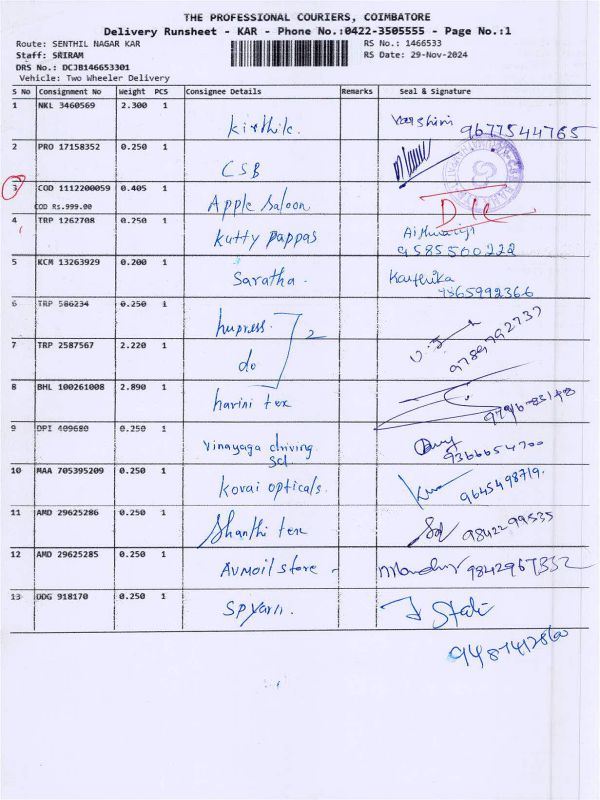 THE PROFESSIONAL COURIERS, COIMBATORE
Delivery Runsheet - KAR - Phone No.:0422-3505555 - Page No.:1
Route: SENTHIL NAGAR KAR RS No.: 1466533
Staff: SRIRAM RS Date: 29-Nov-2024
DRS No.: DCJB146653301
Vehicle: Two Wheeler Delivery
S No Consignment No Weight PCS Consignee Details Remarks Seal & Signature
1 NKL 3460569 2.300 1 Kirthik. Varshini 9677544765
2 PRO 17158352 0.250 1 CSB
3 COD 1112200059 0.405 1 Apple Saloon
COD Rs.999.00
4 TRP 1262708 0.250 1 Kutty pappas 9585500222
5 KCM 13263929 0.200 1 Saratha. Karthika
9865992366
6 TRP 586234 0.250 1 hupress. 2
7 TRP 2587567 2.220 1 do 9789792737
8 BHL 100261008 2.890 1 harini tex
9 DPI 409680 0.250 1 Vinayaga driving 9366654700
10 MAA 705395209 0.250 1 Kovai opticals. 9645498719.
11 AMD 29625286 0.250 1 Shanthi tex 9842299535
12 AMD 29625285 0.250 1 Avmoil store -
13 UDG 918170 0.250 1 SPYarn.